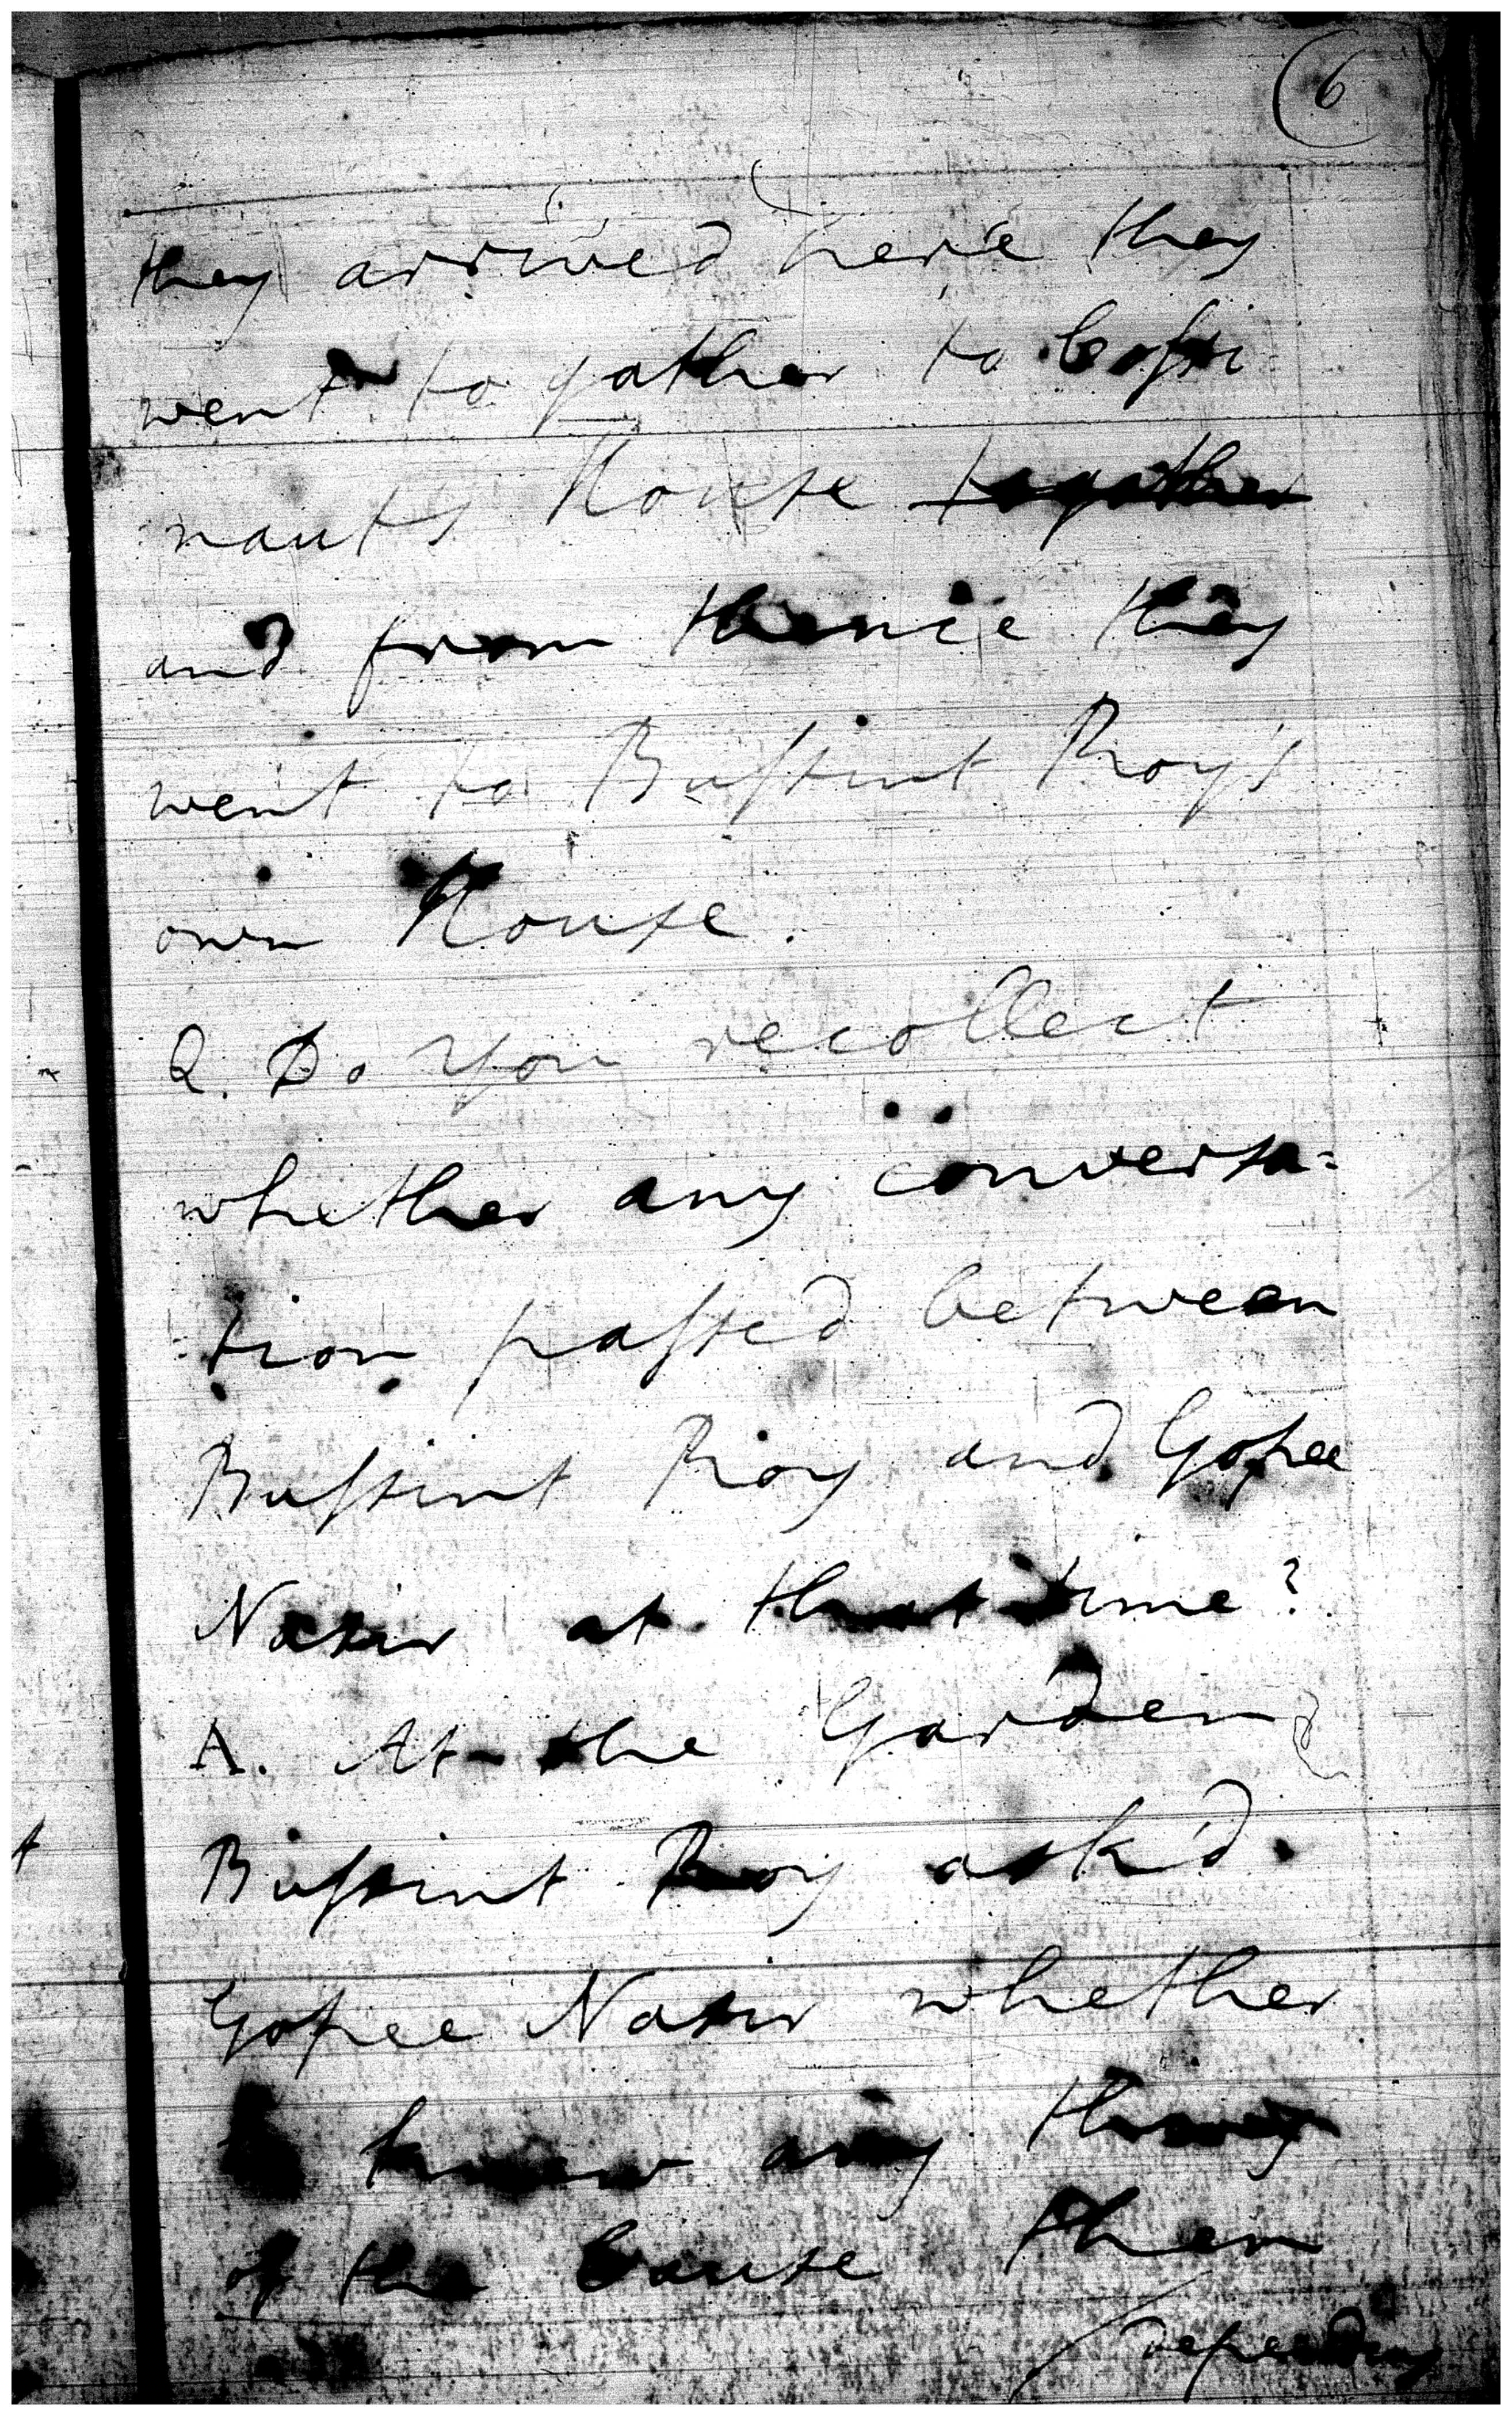 6
they arrived here they
went to gather to Cossi
nauts House together
and from thence they
went to Bussint Roy's
own House.
Q. Do you recollect
whether any conversa-
tion passed between
Bussint Roy and Gopee
Nazir at that time?
A. At the Garden
Bussint Roy ask'd
Gopee Nazir whether
he knew any thing
of the Cause then
depending